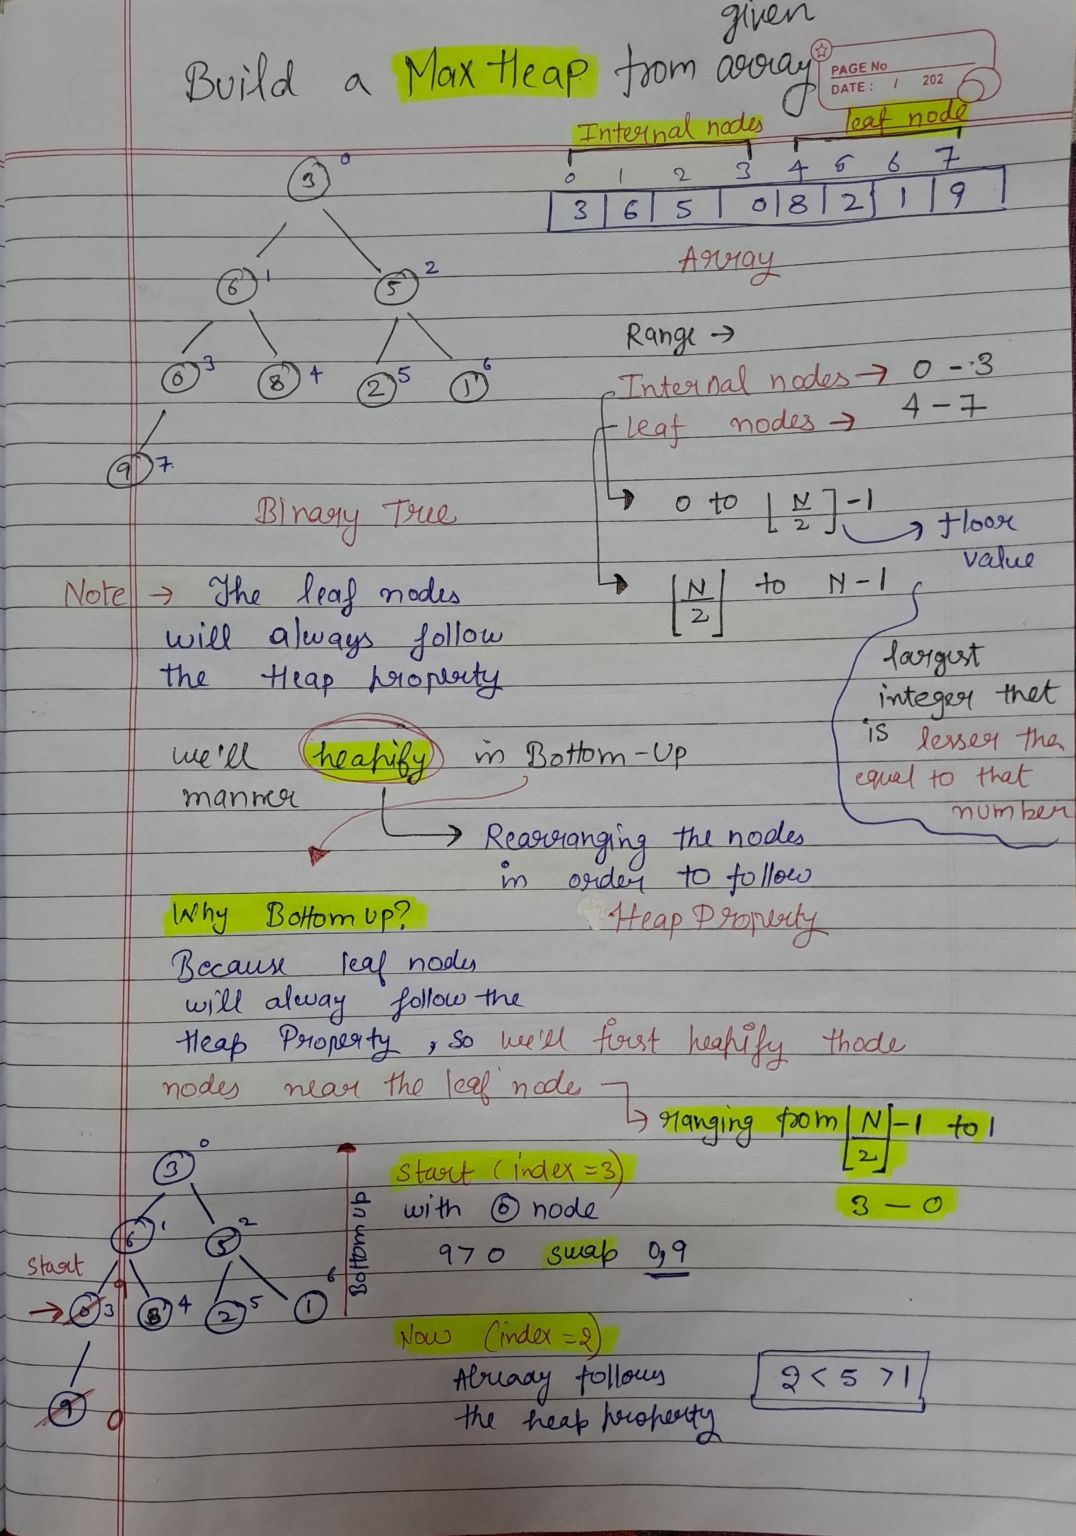 given
Build a Max Heap from array
PAGE No
DATE: / 202
Internal nodes leaf node
0 1 2 3 4 5 6 7
3 6 5 0 8 2 1 9
Array
3 0
6 1 5 2
0 3 8 4 2 5 1 6
9 7
Binary Tree
Range →
Internal nodes → 0 - 3
leaf nodes → 4 - 7
0 to ⌊N/2⌋ - 1
floor
value
⌊N/2⌋ to N - 1
largest
integer thet
is lesser tha
equal to that
number
Note → The leaf nodes
will always follow
the Heap property
we'll heapify in Bottom-Up
manner
Rearranging the nodes
in order to follow
Heap Property
Why Bottom up?
Because leaf nodes
will alway follow the
Heap Property, so we'll first heapify thode
nodes near the leaf node
ranging from ⌊N/2⌋-1 to 1
3 - 0
3 0
6 1 5 2
start
→ 0 3 8 4 2 5 1 6
9 0
9
Bottom up
Start (index = 3)
with 0 node
9 > 0 swap 0,9
Now (index = 2)
Already follows
the heap property
2 < 5 > 1